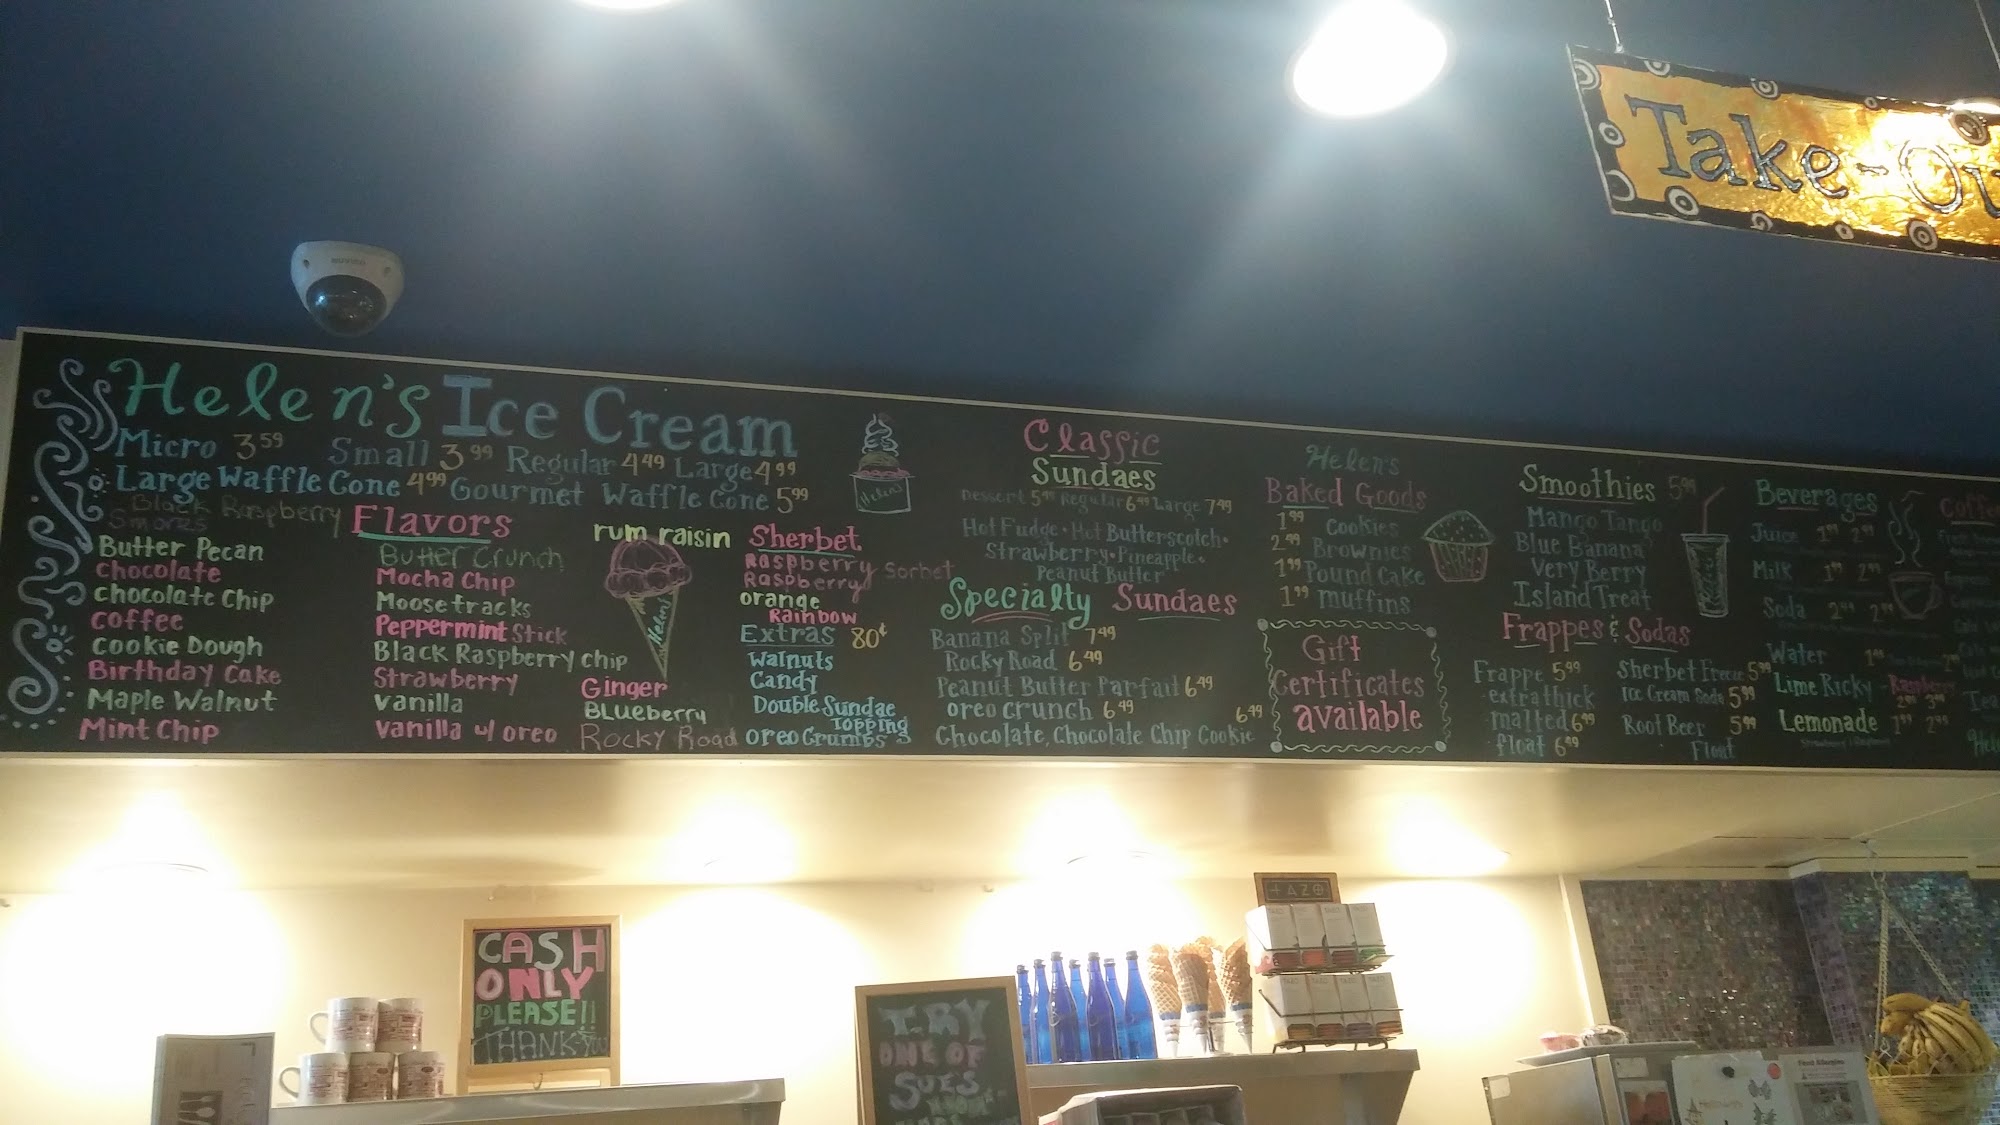 Take-Ou
Helen's Ice Cream
Micro 3 59 Small 3 99 Regular 4 49 Large 4 99
Large Waffle Cone 4 99 Gourmet Waffle Cone 5 99
Black Raspberry
Smores
Flavors
Butter Pecan
Chocolate
Chocolate Chip
Coffee
Cookie Dough
Birthday Cake
Maple Walnut
Mint Chip
Butter Crunch
Mocha Chip
Moose tracks
Peppermint Stick
Black Raspberry chip
Strawberry
vanilla
vanilla w/ oreo
rum raisin
Helen's
Ginger
BLueberry
Rocky Road
Sherbet
Raspberry Sorbet
Raspberry
orange
Rainbow
Extras 80¢
Walnuts
Candy
Double Sundae
Topping
oreo Crumbs
Helen's
Classic
Sundaes
Dessert 5 49 Regular 6 49 Large 7 49
Hot Fudge • Hot Butterscotch •
Strawberry • Pineapple •
Peanut Butter
Specialty Sundaes
Banana Split 7 49
Rocky Road 6 49
Peanut Butter Parfait 6 49
oreo crunch 6 49
6 49
Chocolate, Chocolate Chip Cookie
Helen's
Baked Goods
1 99 Cookies
2 99 Brownies
1 99 Pound Cake
1 99 muffins
Gift
Certificates
available
Smoothies 5 99
Mango Tango
Blue Banana
Very Berry
Island Treat
Frappes & Sodas
Frappe 5 99
extra thick
malted 6 99
float 6 99
Sherbet Freeze 5 99
Ice Cream Soda 5 99
Root Beer 5 99
Float
Beverages
Juice 1 99 2 99
Milk 1 99 2 99
Soda
Water
Lime Ricky - Raspberry
Lemonade 1 99 2 49
CASH
ONLY
PLEASE!!
THANK YOU
TRY
ONE OF
SUES
TAZO